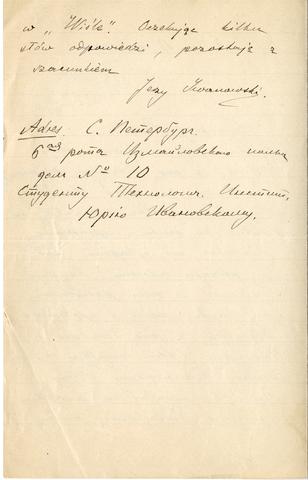 w „Wiśle". Oczekując kilku
słów odpowiedzi, pozostaję z
szacunkiem
Jerzy Iwanowski.
Adres. С. Петербург.
6ая рота Измайловскаго полка
домъ № 10
Студенту Технолог. Инстит.
Юрію Ивановскому.